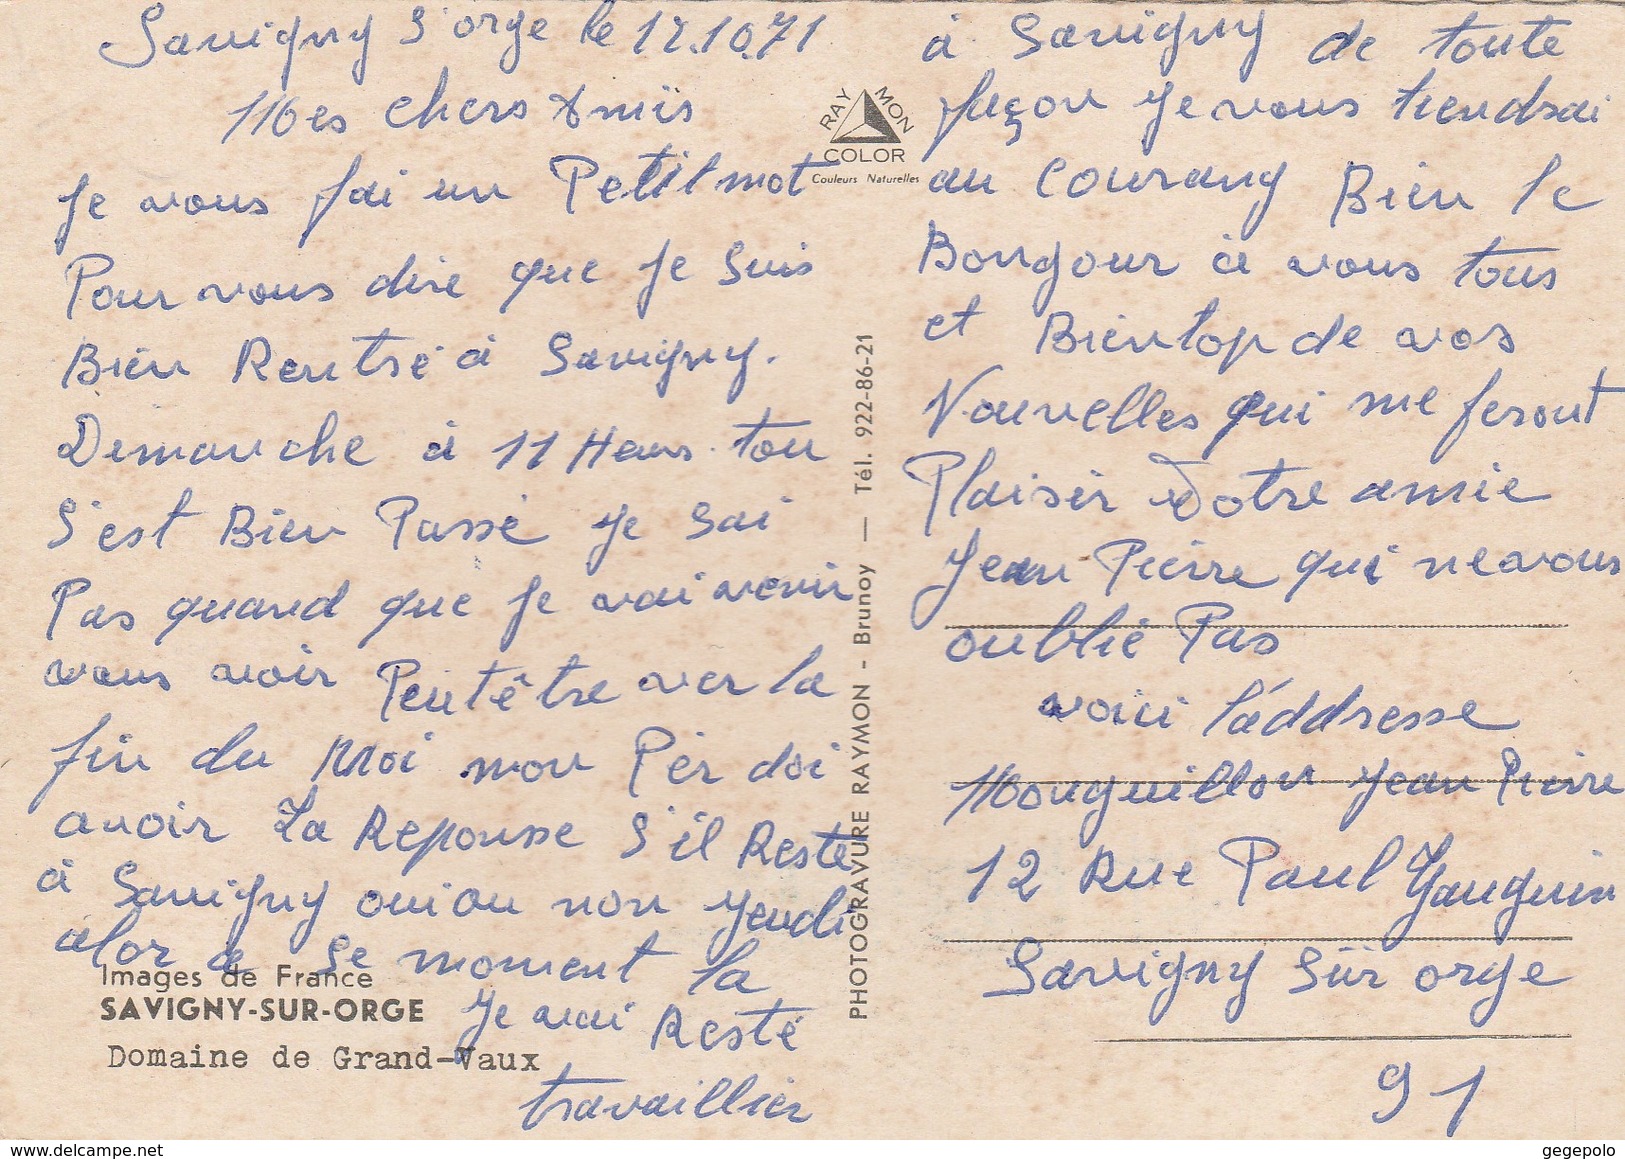 Savigny S'orge le 12.10.71
Mes chers Amis
Je vous fai un Petit mot
Pour vous dire que Je Suis
Bien Rentré à Savigny.
Dimanche à 11 Heurs. tou
S'est Bien Passé Je Sai
Pas quand que Je vai venir
vous voir Peutêtre ver la
fin du Moi mon Pèr doi
avoir La Reponsse S'il Reste
à Savigny oui ou non Jeudi
alor a Se moment la
Je vai Resté
travaillier
Images de France
SAVIGNY-SUR-ORGE
Domaine de Grand-Vaux
RAYMON
COLOR
Couleurs Naturelles
PHOTOGRAVURE RAYMON - Brunoy — Tél. 922-86-21
à Savigny de toute
façon Je vous tiendrai
au Courang Bien le
Bongour à vous tous
et Bientop de vos
Nouvelles qui me feront
Plaisir Votre amie
Jean Pierre qui ne vous
oublie Pas
voici l'addresse
Monguillon Jean Pierre
12 Rue Paul Gauguin
Savigny Sur orge
91
gegepolo